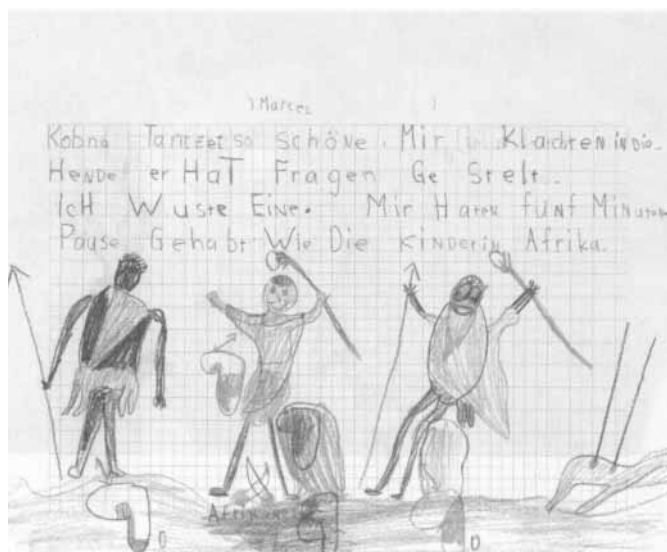 Marcel
Kobna Tanzet so schöne. Mir Klachten in die
Hende er HaT Fragen Ge Stelt..
ich Wuste Eine. Mir Haten fünf Minuten
Pause Gehabt Wie Die Kinder in Afrika.
Afrika